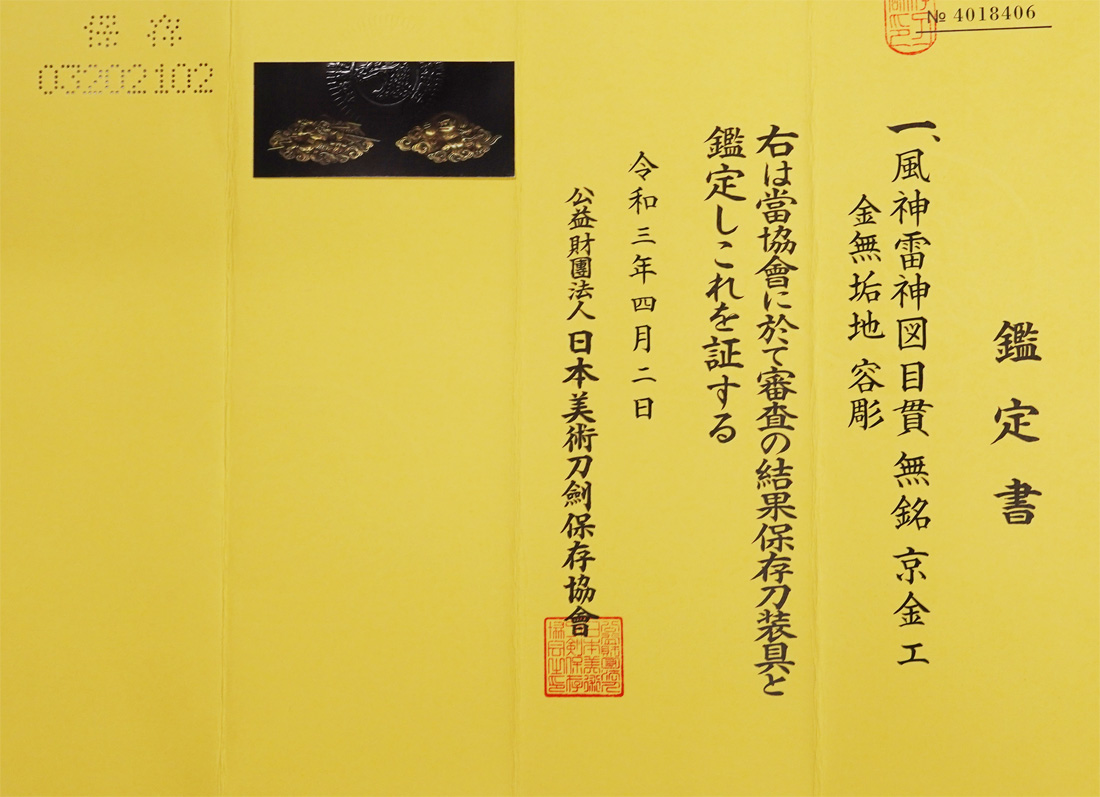 № 4018406
鑑定書
一、風神雷神図目貫 無銘 京金工
金無垢地 容彫
右は當協會に於て審査の結果保存刀装具と
鑑定しこれを証する
令和三年四月二日
公益財團法人 日本美術刀劍保存協會
保存
03202102